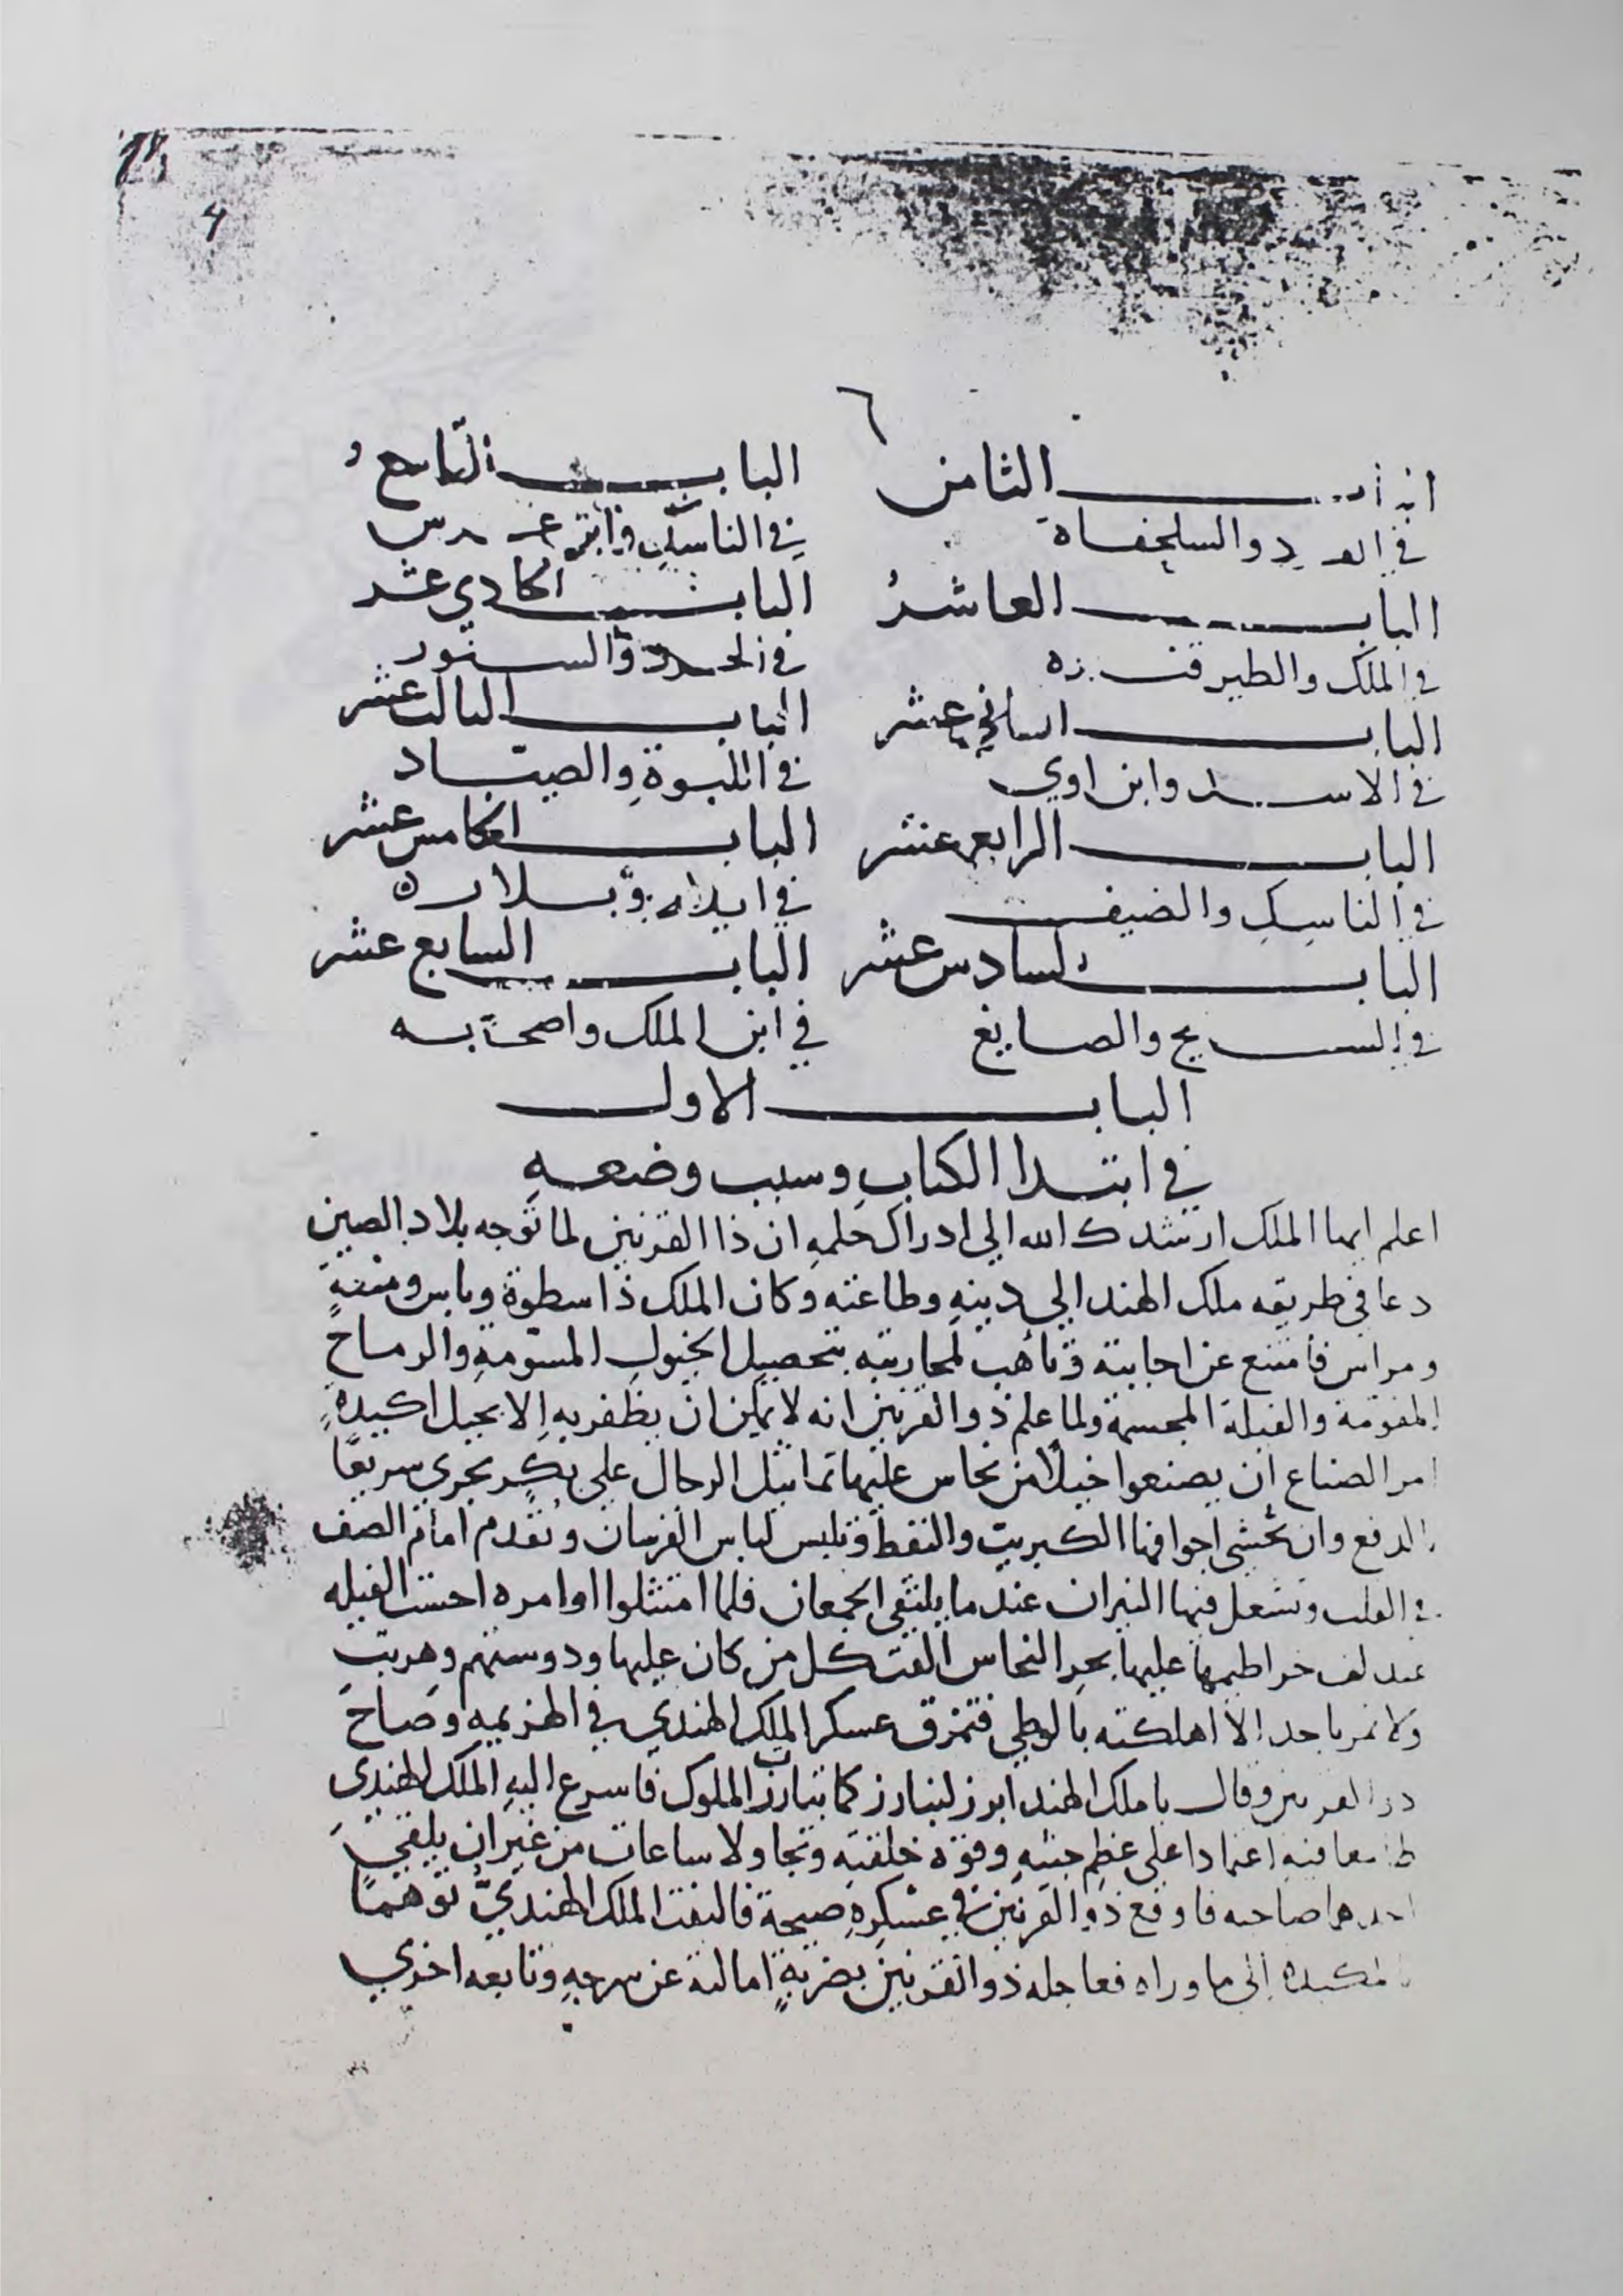 ٦
الثامن
الباب التاسع
في والسلحفاة
في الناسك وابن عرس
الباب العاشر
الباب الحادي عشر
في الملك والطير فنزه
في الجرد والسنور
الباب الثاني عشر
الباب الثالث عشر
في الاسد وابن اوي
في اللبوة والصياد
الباب الرابع عشر
الباب الخامس عشر
في الناسك والضيف
في ايلاد وبلاره
الباب السادس عشر
الباب السابع عشر
في السايح والصايغ
في ابن الملك واصحابه
الباب الاول
في ابتدا الكتاب وسبب وضعه
اعلم ايها الملك ارشدك الله الي ادراك حلمه ان ذا القرنين لما توجه بلاد الصين
دعا في طريقه ملك الهند الي دينه وطاعته وكان الملك ذا سطوة وباس ومنعة
ومراس فامتنع عن اجابته وتأهب لمحاربته بتحصيل الخيول المسومة والرماح
المقومة والفيلة المجسمة ولما علم ذو القرنين انه لا يمكن ان يظفر به الا بحيل اكيدة
امر الصناع ان يصنعوا خيلا من نحاس عليها تماثيل الرجال علي بكر يجري سريعا
الدفع وان تحشي اجوافها الكبريت والنفط وتلبس لباس الفرسان وتقدم امام الصف
في القلب وتشعل فيها النيران عندما يلتقي الجمعان فلما امتثلوا اوامره احست الفيله
عند لف خراطيمها عليها بحر النحاس القت كل من كان عليها ودوستهم وهربت
ولا تمر باحد الا اهلكته بالوطي فتمزق عسكر الملك الهندي في الهزيمه وصاح
ذو القرنين وقال يا ملك الهند ابرز لنبارز كما تتبارز الملوك فاسرع اليه الملك الهندي
طامعا فيه اعتمادا علي عظم جثته وقوة خلقته وتجاولا ساعات من غير ان يلقي
احدهما صاحبه فاوقع ذو القرنين في عسكره صيحة فالتفت الملك الهندي توهما
المكيده الي ما وراه فعاجله ذو القرنين بضربة امالته عن سرجه وتابعه اخري